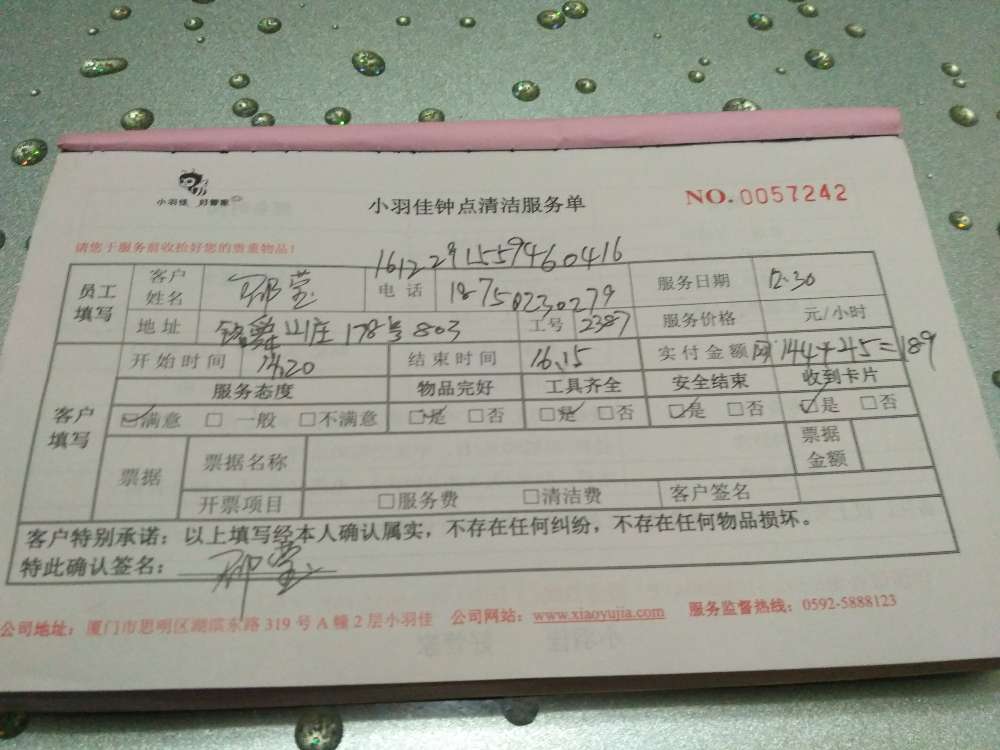 小羽佳 好管家
小羽佳钟点清洁服务单
NO. 0057242
请您于服务前收捡好您的贵重物品！
1612291559460416
员工填写 客户姓名 莹 电话 18750230279 服务日期 12.30
地址 山庄178号803 工号 2387 服务价格 元/小时
客户填写 开始时间 14.20 结束时间 16.15 实付金额 网144+45=189
服务态度 物品完好 工具齐全 安全结束 收到卡片
☑满意 □一般 □不满意 ☑是 □否 ☑是 □否 ☑是 □否 ☑是 □否
票据 票据名称 票据金额
开票项目 □服务费 □清洁费 客户签名
客户特别承诺：以上填写经本人确认属实，不存在任何纠纷，不存在任何物品损坏。
特此确认签名： 莹
公司地址：厦门市思明区湖滨东路319号A幢2层小羽佳 公司网站：www.xiaoyujia.com 服务监督热线：0592-5888123